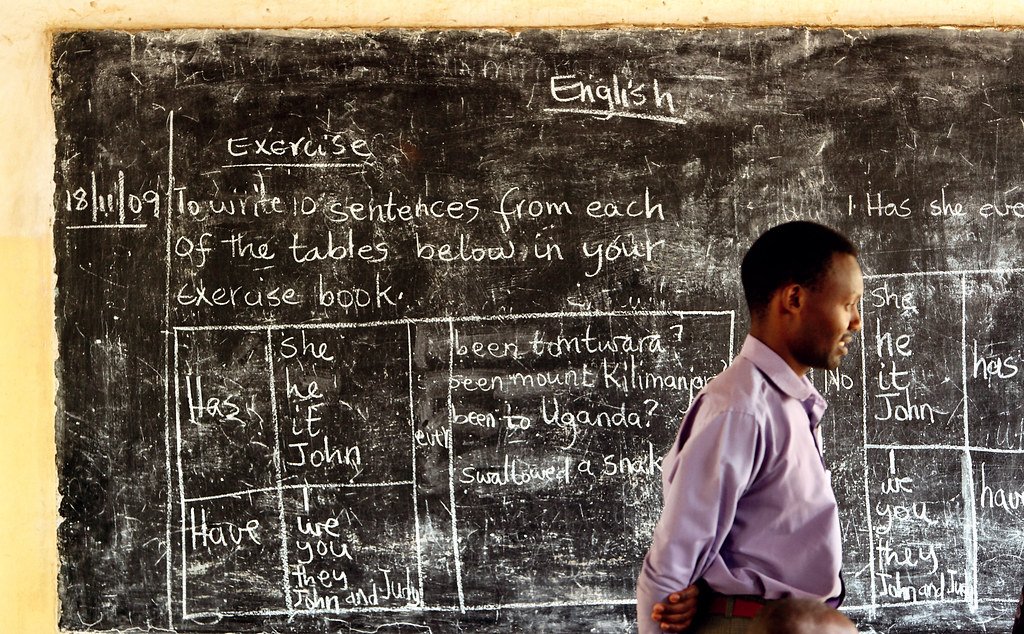 English
Exercise
18/11/09
To write 10 sentences from each
of the tables below in your
exercise book.
Has
she
he
it
John
Have
I
we
you
they
John and Judy
been to mtwara?
seen mount Kilimanjar
been to Uganda?
swallowed a snak
1 Has she eve
No
she
he
it
John
has
I
we
you
they
John and Jud
hav